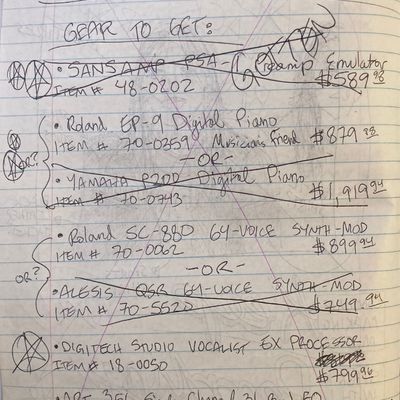 GEAR TO GET:
• SANSAMP PSA-1 Preamp Emulator
ITEM # 48-0202 $589.98
• Roland EP-9 Digital Piano
ITEM # 70-0359 Musicians Friend $879.88
OR? -OR-
• YAMAHA P200 Digital Piano
ITEM # 70-0743 $1,919.94
• Roland SC-880 64-VOICE SYNTH-MOD
ITEM # 70-0062 $899.94
OR? -OR-
• ALESIS QSR 64-VOICE SYNTH-MOD
ITEM # 70-5520 $749.94
• DIGITECH STUDIO VOCALIST EX PROCESSOR
ITEM # 18-0050 $799.96